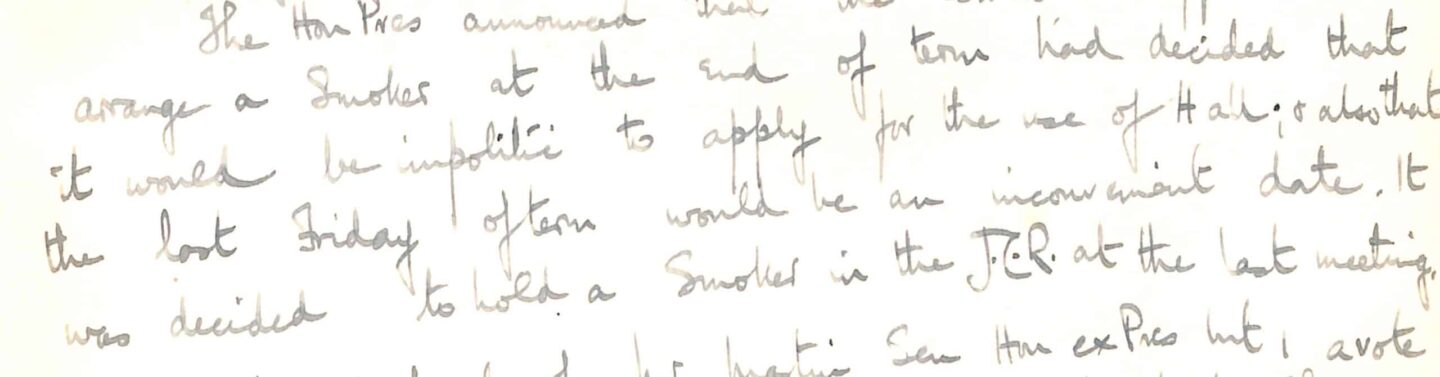 The Hon Pres announced that the
arrange a Smoker at the end of term had decided that
it would be impolitic to apply for the use of Hall; & also that
the last Friday of term would be an inconvenient date. It
was decided to hold a Smoker in the J.C.R. at the last meeting.
Martin Sen Hon ex Pres but 1 a vote